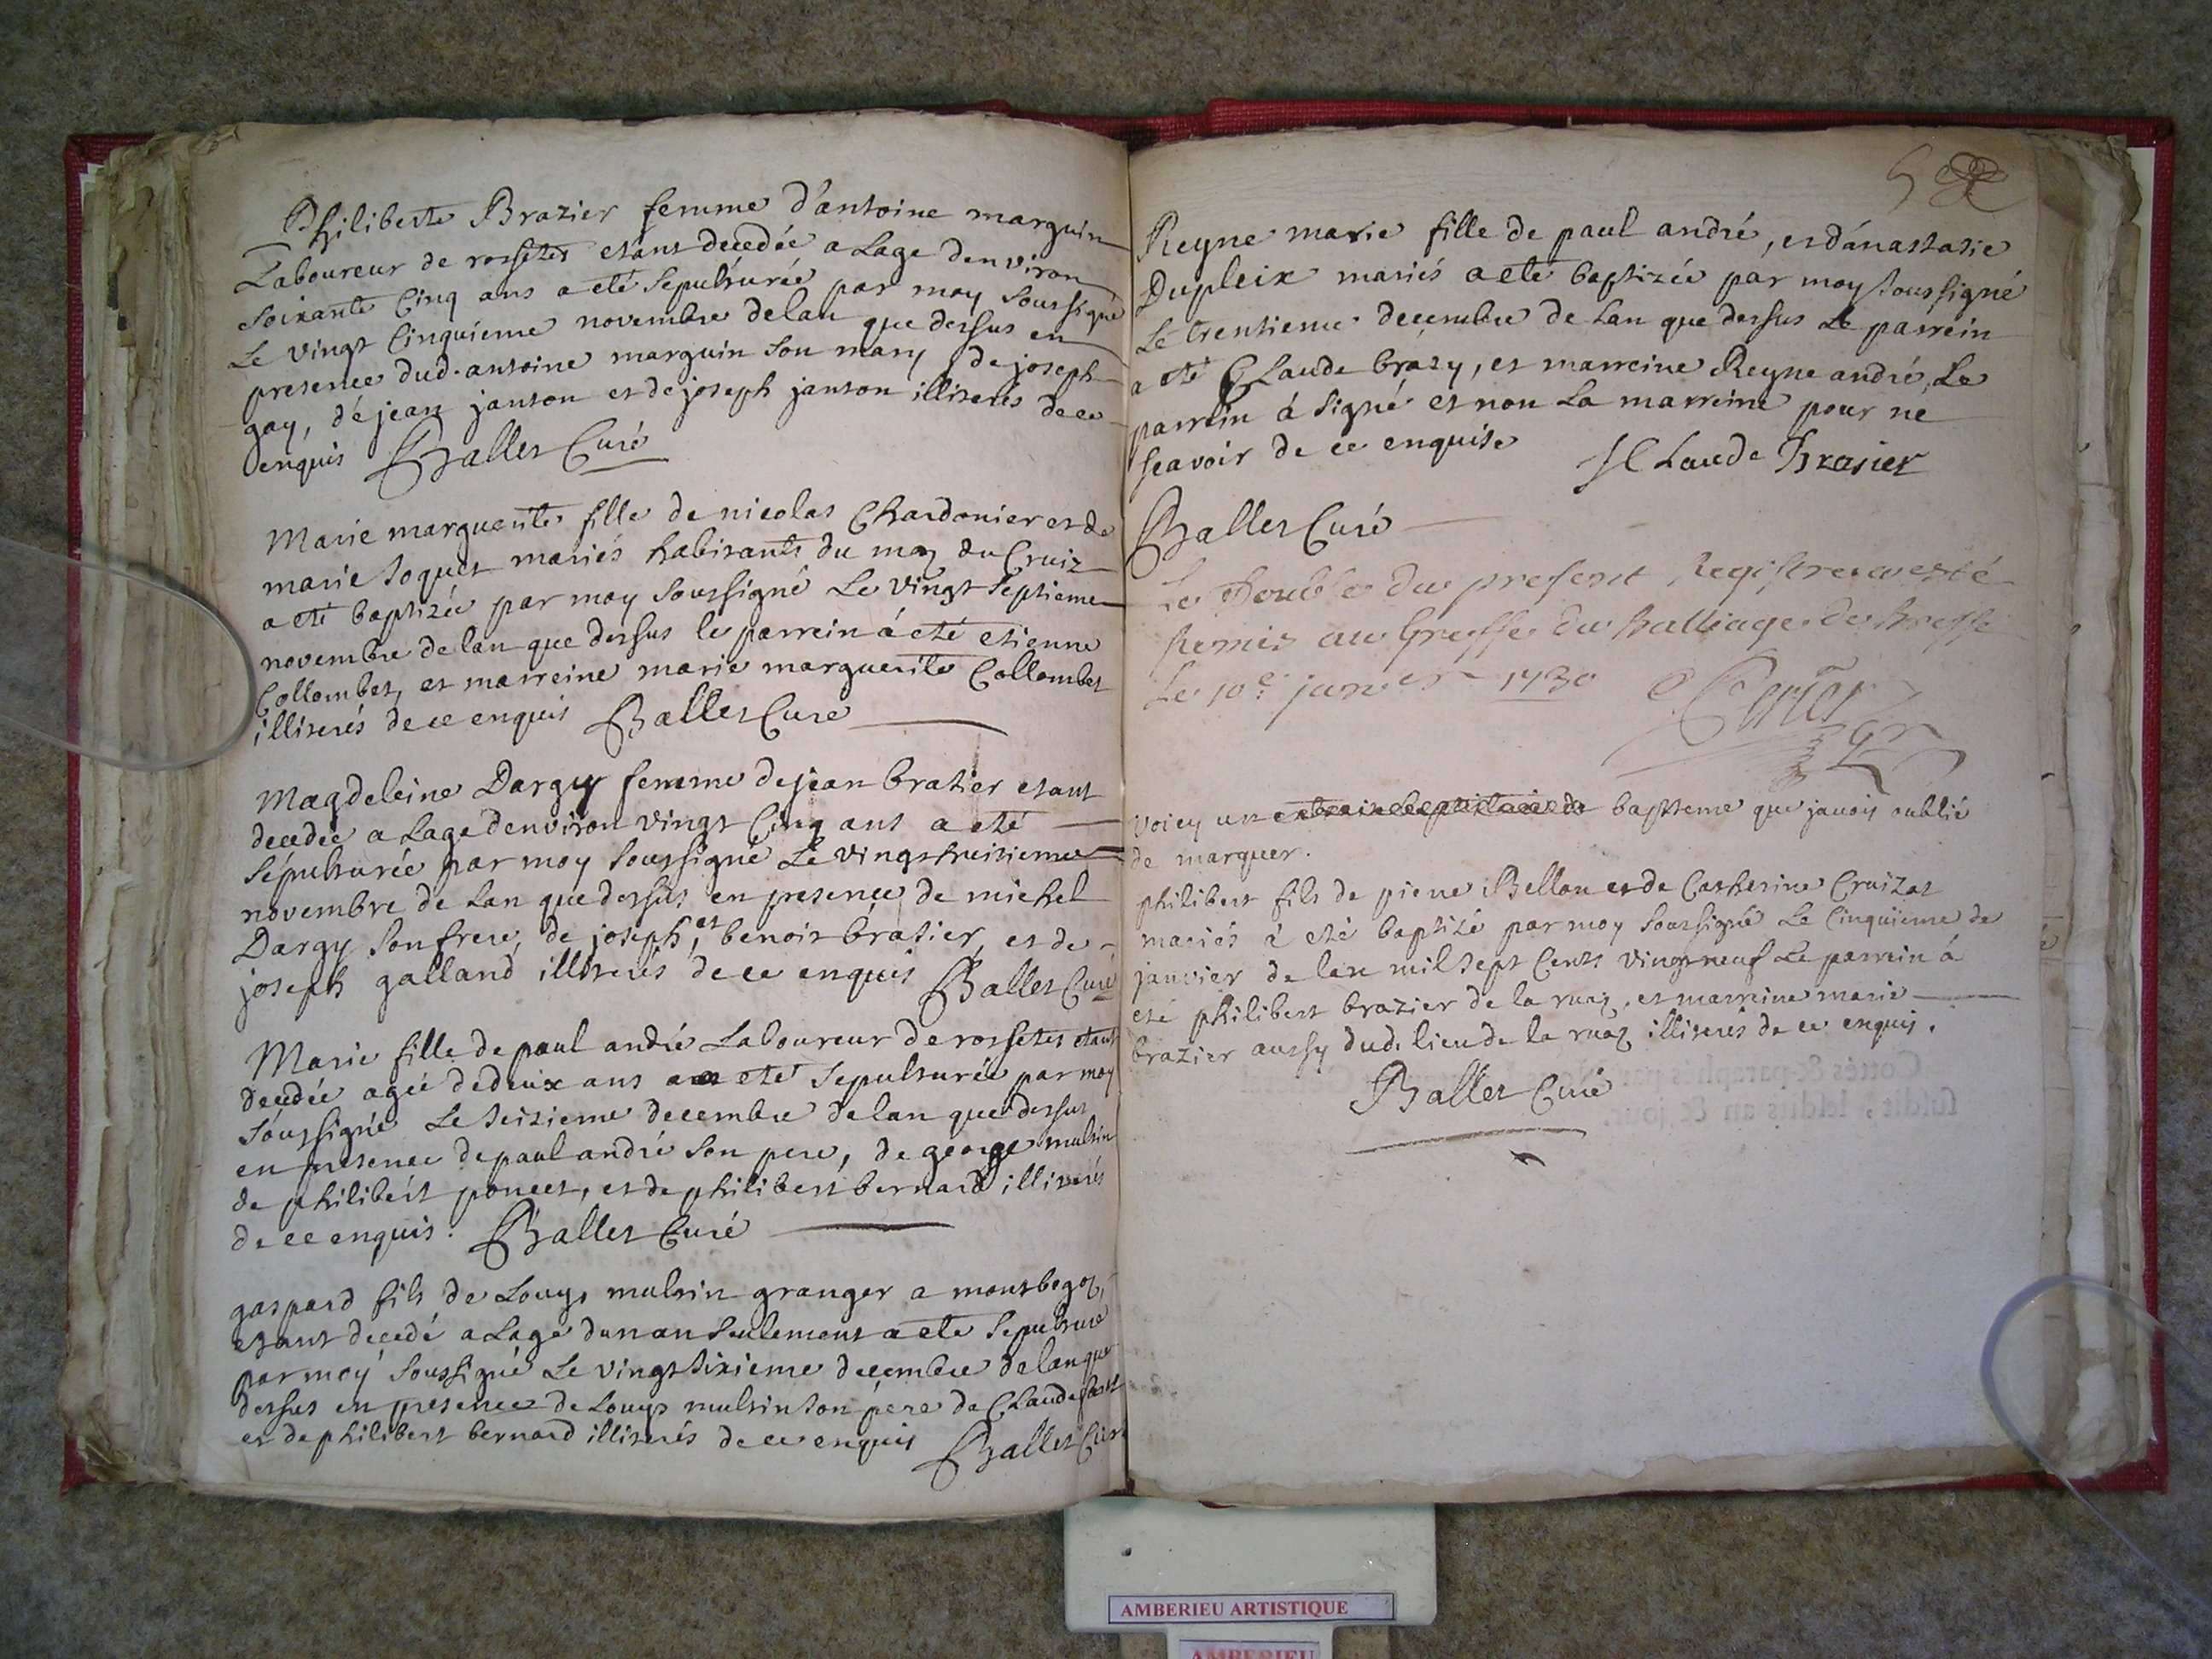 Philiberte Brazier femme d'antoine marguin
Laboureur de rossetes etant decedée a Lage denviron
soixante Cinq ans a eté Sepulturée par moy soussigné
Le vingt Cinquieme novembre de lan que dessus en
presence dud. antoine marguin son mary de joseph
gay, de jean janton et de joseph janton illiterés de ce
enquis Ballet Curé
Marie marguerite fille de nicolas Chardonier et de
marie mariés habitants du mas du Cruiz
a eté baptizée par moy soussigné Le vingt septieme
novembre de lan que dessus le parrein á eté etienne
Collombet, et marreine marie marguerite Collombet
illiterés de ce enquis Ballet Curé
Magdeleine Dargy femme de jean brazier etant
decedée a Lage denviron vingt Cinq ans a eté
Sépulturée par moy soussigné Le vingt huitieme
novembre de Lan que dessus en presence de michel
Dargy son frere, de joseph, et benoit brázier, et de
joseph galland illiterés de ce enquis Ballet Curé
Marie fille de paul andré Laboureur de rossetes etant
decedée agée de deux ans a eté Sepulturée par moy
soussigné Le seizieme decembre de lan que dessus
en presence de paul andré son pere, de george multin
de philibert poncet, et de philibert bernard illiterés
de ce enquis. Ballet Curé
gaspard fils de Louys multin granger a montbegoz,
etant decedé a Lage dun an seulement a eté Sepulturé
par moy soussigné Le vingt sixieme decembre de lan que
dessus en presence de Louys multin son pere de Claude
et de philibert bernard illiterés de ce enquis Ballet Curé
Reyne marie fille de paul andré, et dánastasie
Dupleix mariés a eté baptizée par moy soussigné
Le trentieme decembre de Lan que dessus Le parrein
a eté Claude brázy, et marreine Reyne andré, Le
parrein á signé et non La marreine pour ne
scavoir de ce enquise Claude Brasier
Ballet Curé
Le Double du present Registre a esté
Remis au Greffe du balliage de bresse
Le 10e janver 1730
voicy un baptteme que javois oublié
de marquer.
philibert fils de pierre Bellon et de Catherine Cruizat
mariés á eté baptizé par moy soussigné Le Cinquieme de
janvier de lan mil sept Cents vingt neuf Le parrein á
eté philibert brazier de la ruaz, et marreine marie
brazier aussy dud. lieu de la ruaz illiterés de ce enquis.
Ballet Curé
AMBERIEU ARTISTIQUE
AMBERIEU